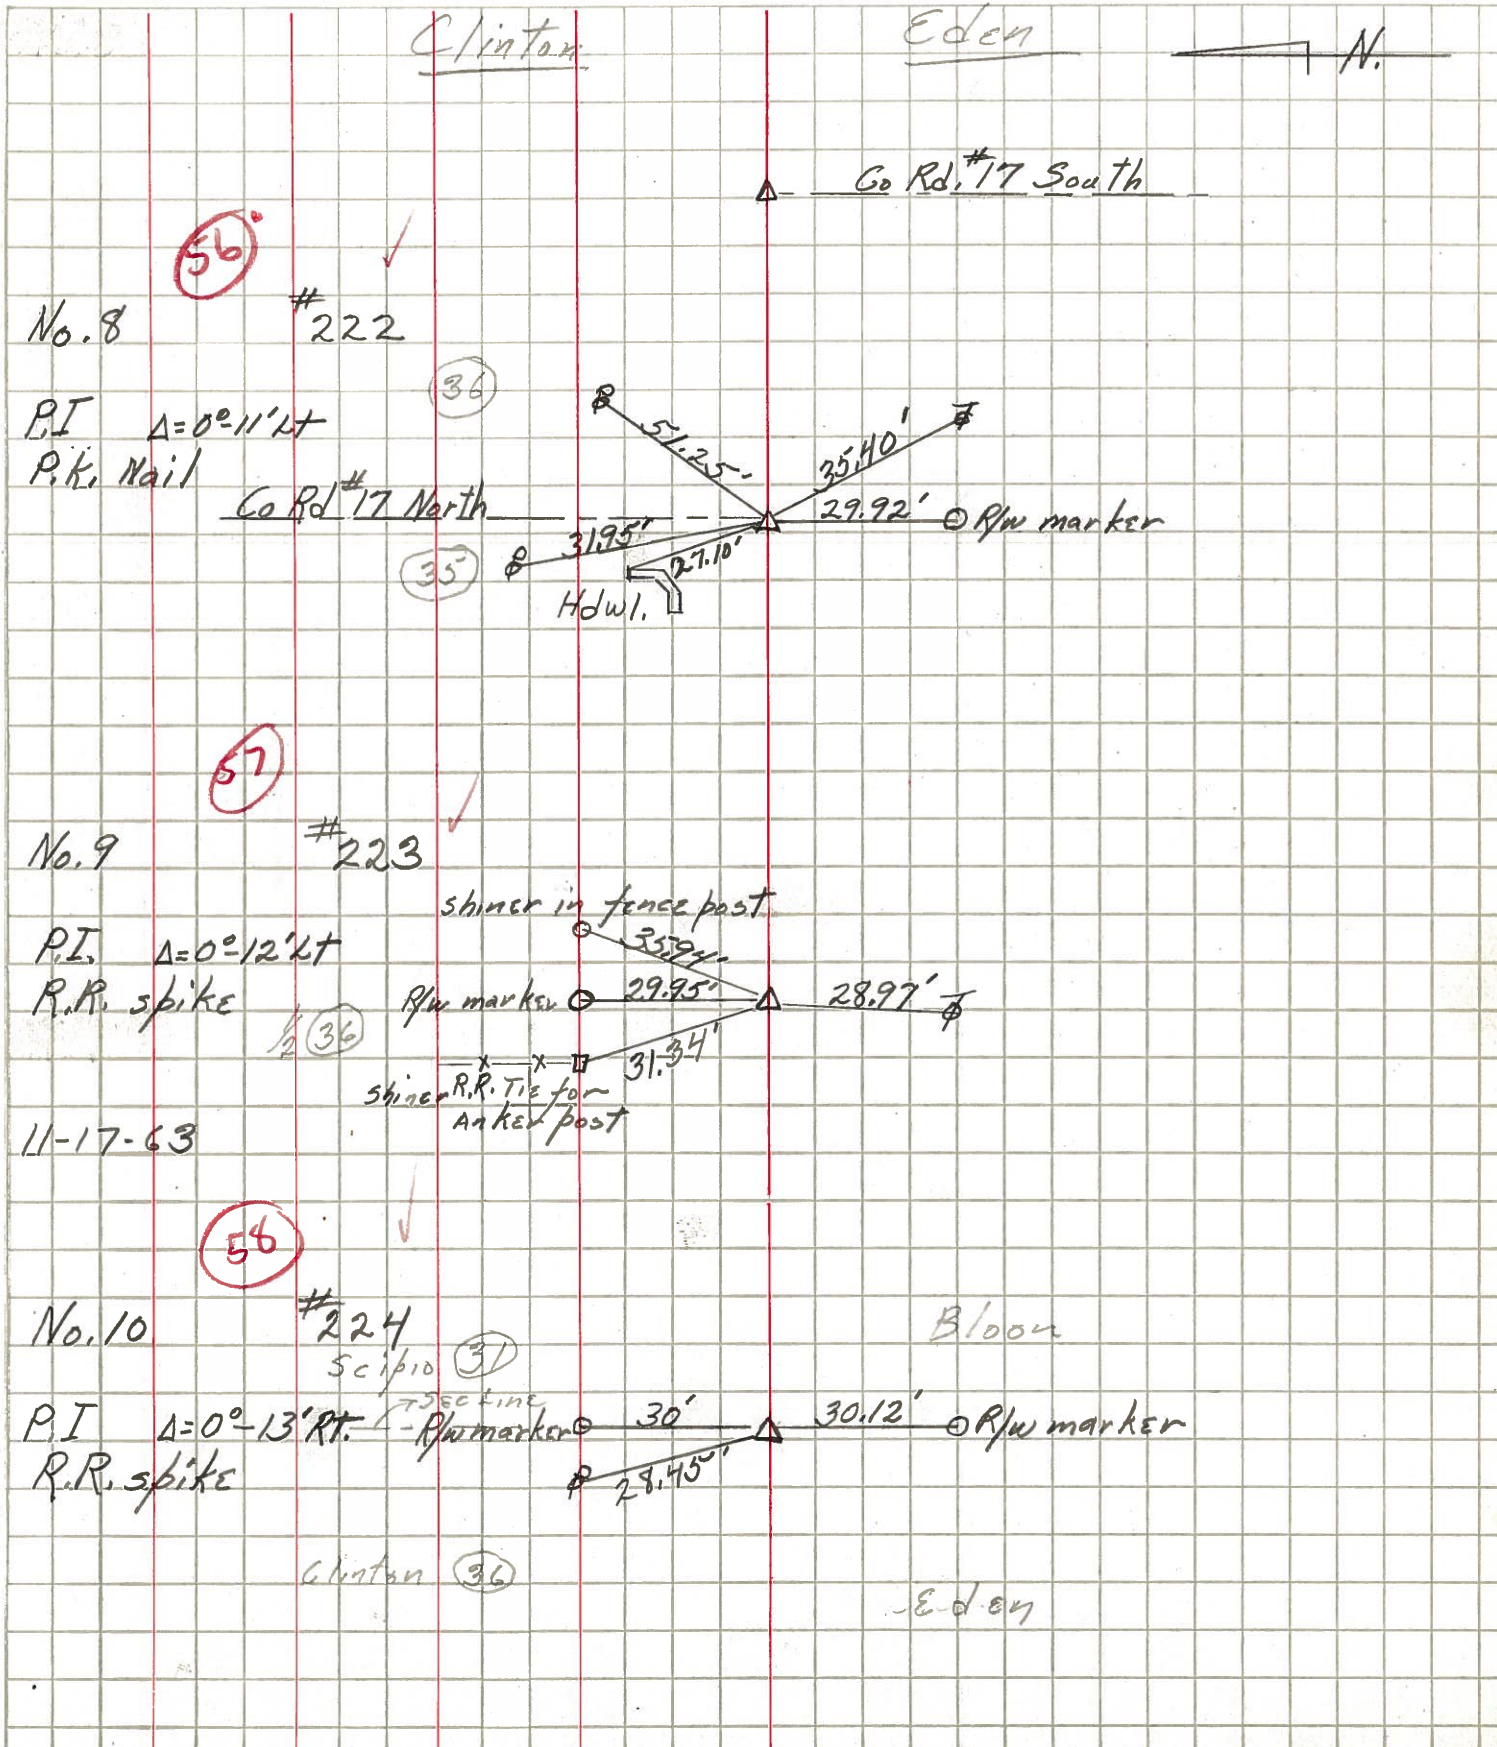 Clinton Eden N.
Co Rd. #17 South
56
No. 8 #222
36
P.I Δ=0°-11' Lt
P.K. Nail
51.25' 35.40'
Co Rd #17 North 29.92' R/w marker
31.95' 27.10'
35
Hdwl.
57
No. 9 #223
shiner in fence post
P.I. Δ=0°-12' Lt 35.94'
R.R. spike R/w marker 29.95' 28.97'
1/2 36
31.34'
shiner R.R. Tie for
Anker post
11-17-63
58
No. 10 #224 Bloon
Scipio 31
Sec Line
P.I Δ=0°-13' Rt. R/w marker 30' 30.12' R/w marker
R.R. spike 28.45'
Clinton 36
Eden